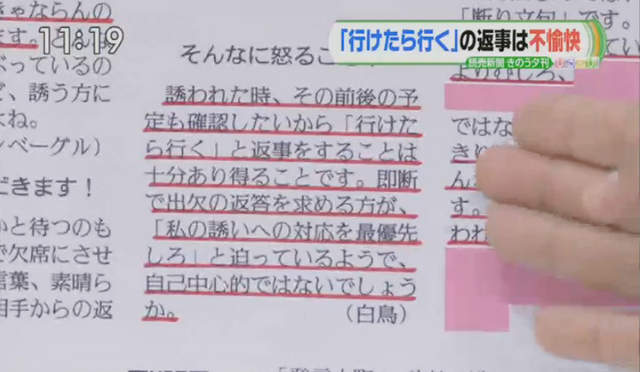 11:19
「行けたら行く」の返事は不愉快
読売新聞 きのう夕刊
「断り文句」です。
よりむしろ、
ではな
きり
す。
われ
そんなに怒るこ
誘われた時、その前後の予
定も確認したいから「行けた
ら行く」と返事をすることは
十分あり得ることです。即断
で出欠の返答を求める方が、
「私の誘いへの対応を最優先
しろ」と迫っているようで、
自己中心的ではないでしょう
か。
(白鳥)
きゃならんの
ます。
ぶっているの
ど、誘う方に
よね。
ンベーグル)
だきます！
かと待つのも
で欠席にさせ
言葉、素晴ら
相手からの返